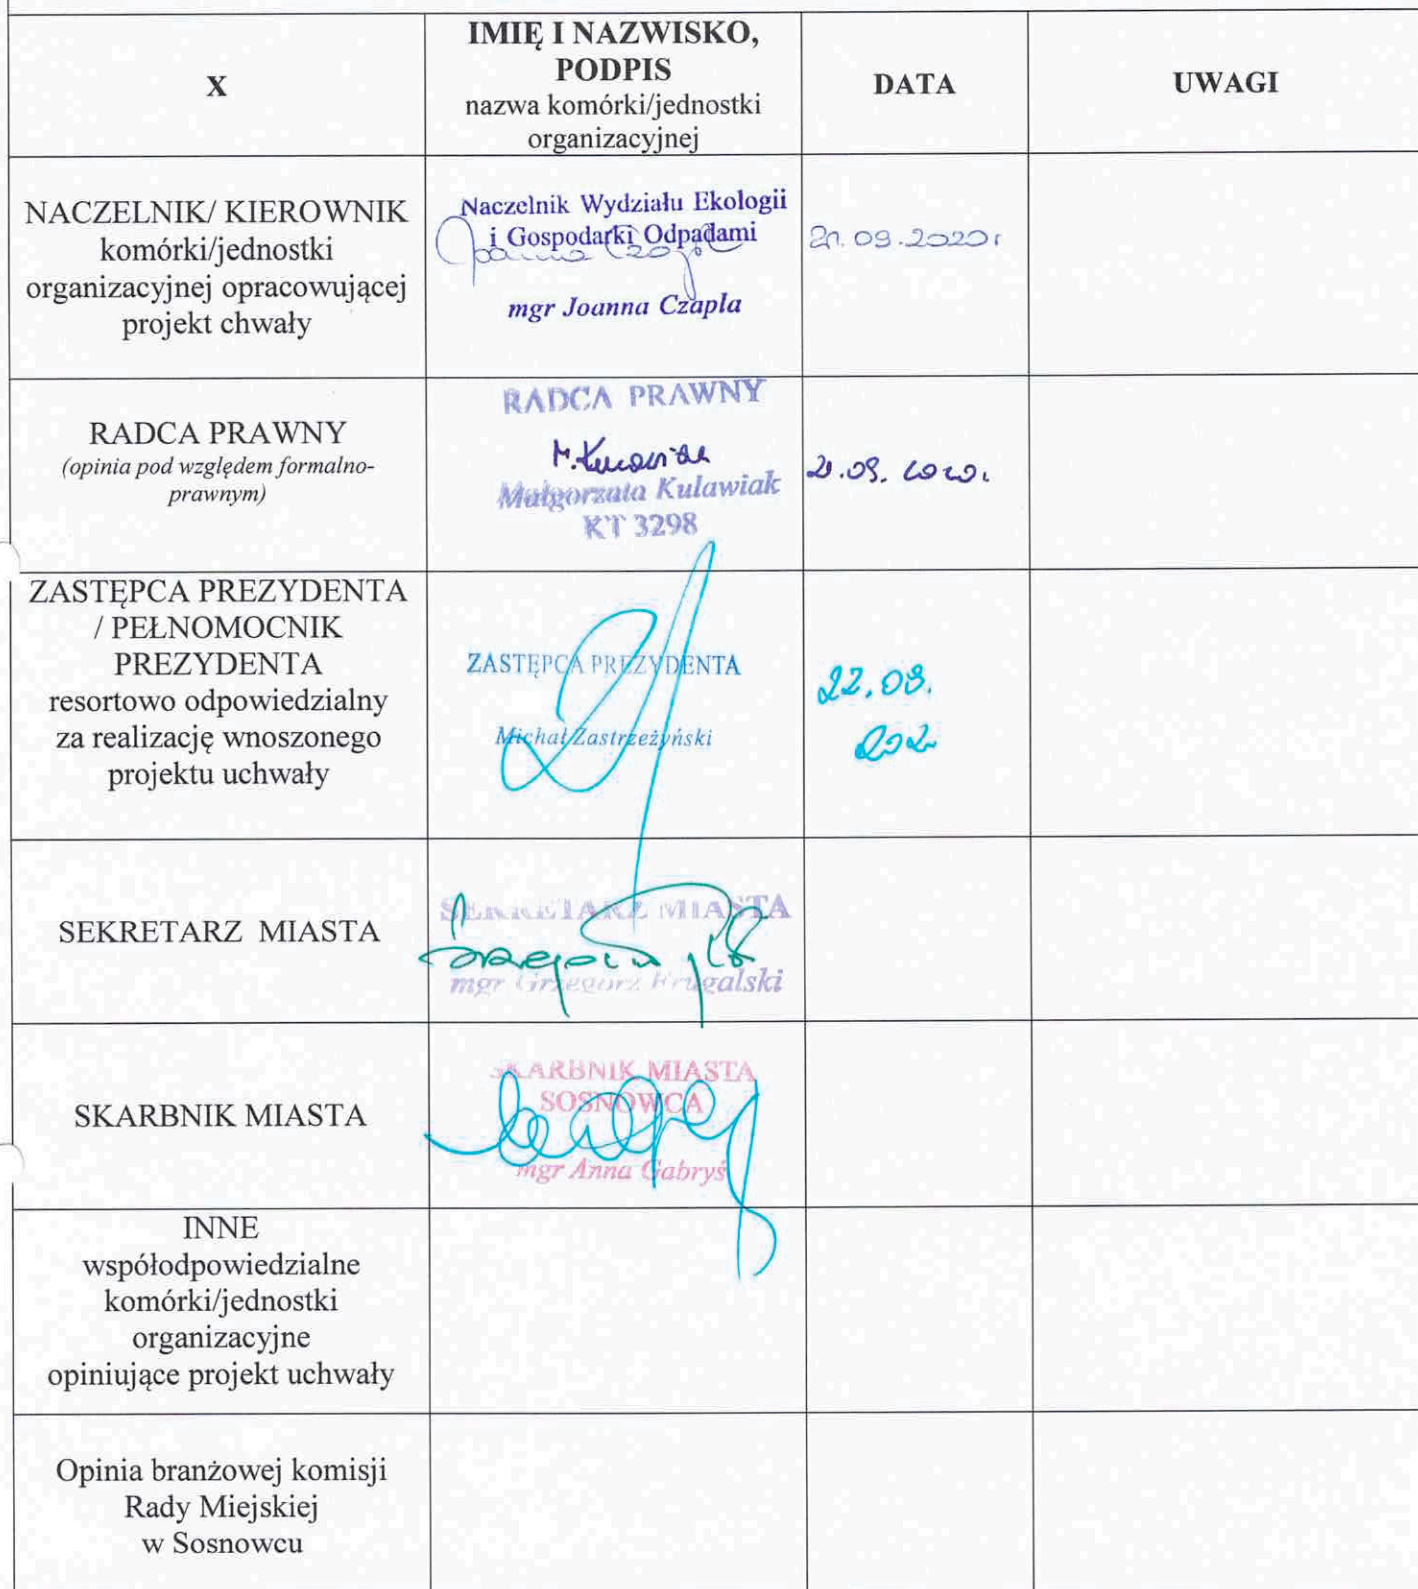 X
IMIĘ I NAZWISKO,
PODPIS
nazwa komórki/jednostki
organizacyjnej
DATA
UWAGI
NACZELNIK/ KIEROWNIK
komórki/jednostki
organizacyjnej opracowującej
projekt chwały
Naczelnik Wydziału Ekologii
i Gospodarki Odpadami
mgr Joanna Czapla
21.09.2020r
RADCA PRAWNY
(opinia pod względem formalno-
prawnym)
RADCA PRAWNY
Małgorzata Kulawiak
KT 3298
ZASTĘPCA PREZYDENTA
/ PEŁNOMOCNIK
PREZYDENTA
resortowo odpowiedzialny
za realizację wnoszonego
projektu uchwały
ZASTĘPCA PREZYDENTA
Michał Zastrzeżyński
22.09.
SEKRETARZ MIASTA
SEKRETARZ MIASTA
mgr Grzegorz Frugalski
SKARBNIK MIASTA
SKARBNIK MIASTA
SOSNOWCA
mgr Anna Gabryś
INNE
współodpowiedzialne
komórki/jednostki
organizacyjne
opiniujące projekt uchwały
Opinia branżowej komisji
Rady Miejskiej
w Sosnowcu